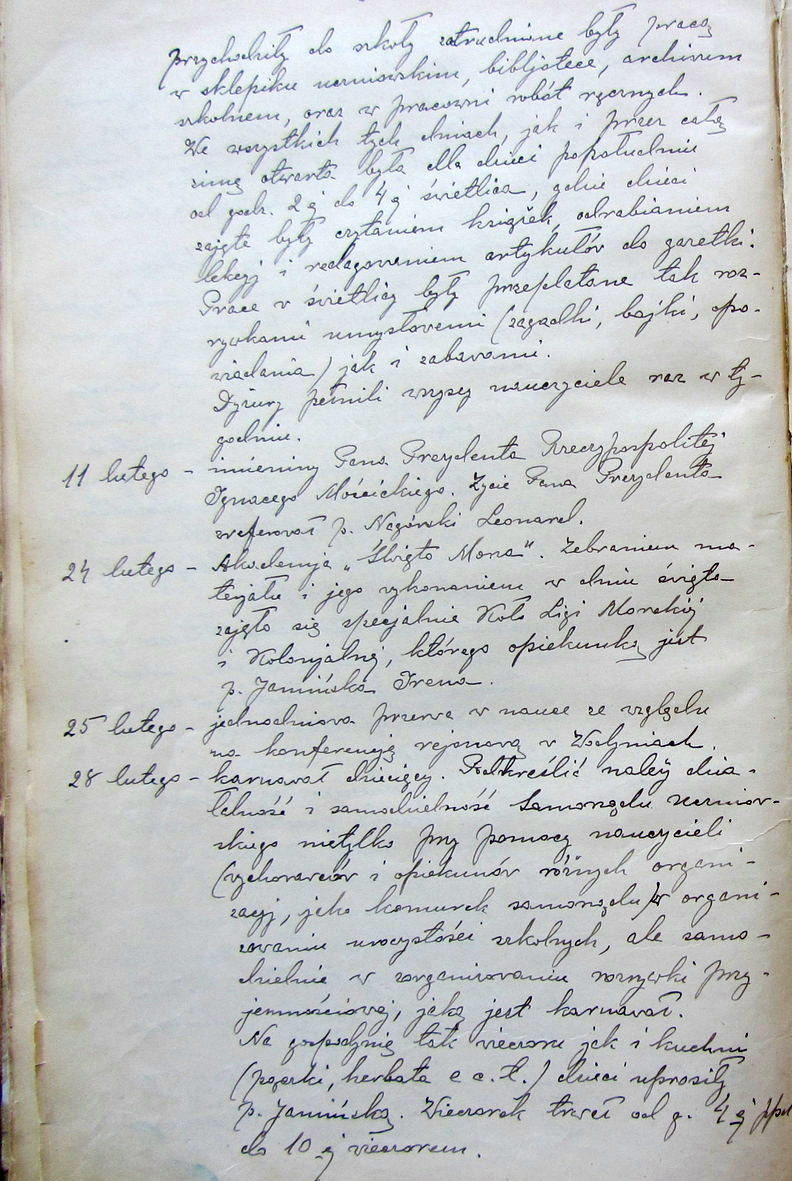 przychodziły do szkoły zatrudnione były pracą
w sklepiku uczniowskim, bibljotece, archiwum
szkolnem, oraz w pracowni robót ręcznych.
We wszystkich tych dniach, jak i przez całą
zimę otwarta była dla dzieci popołudniu
od godz. 2 ej do 4 ej świetlica, gdzie dzieci
zajęte były czytaniem książek, odrabianiem
lekcyj i redagowaniem artykułów do gazetki.
Prace w świetlicy były przeplatane tak roz-
rywkami umysłowemi (zagadki, bajki, opo-
wiadania) jak i zabawami.
Dyżury pełnili wszyscy nauczyciele raz w ty-
godniu.
11 lutego - imieniny Pana Prezydenta Rzeczypospolitej
Ignacego Mościckiego. Życie Pana Prezydenta
zreferował p. Nagórski Leonard.
24 lutego - Akademja „Święto Morza". Zebraniem ma-
terjału i jego wykonaniem w dniu święta
zajęło się specjalnie Koło Ligi Morskiej
i Kolonjalnej, którego opiekunką jest
p. Jamińska Irena.
25 lutego - jednodniowa przerwa w nauce ze względu
na konferencję rejonową w Wodyniach.
28 lutego - karnawał dziecięcy. Podkreślić należy dzia-
łalność i samodzielność Samorządu Uczniow-
skiego nietylko przy pomocy nauczycieli
(wychowawców i opiekunów różnych organi-
zacyj, jako komórek samorządu) w organi-
zowaniu uroczystości szkolnych, ale samo-
dzielnie w zorganizowaniu rozrywki przy-
jemnościowej, jaką jest karnawał.
Na gospodynię tak wieczoru jak i kuchni
(pączki, herbata e c. t.) dzieci uprosiły
p. Jamińską. Wieczorek trwał od g. 4 ej ppoł
do 10 ej wieczorem.